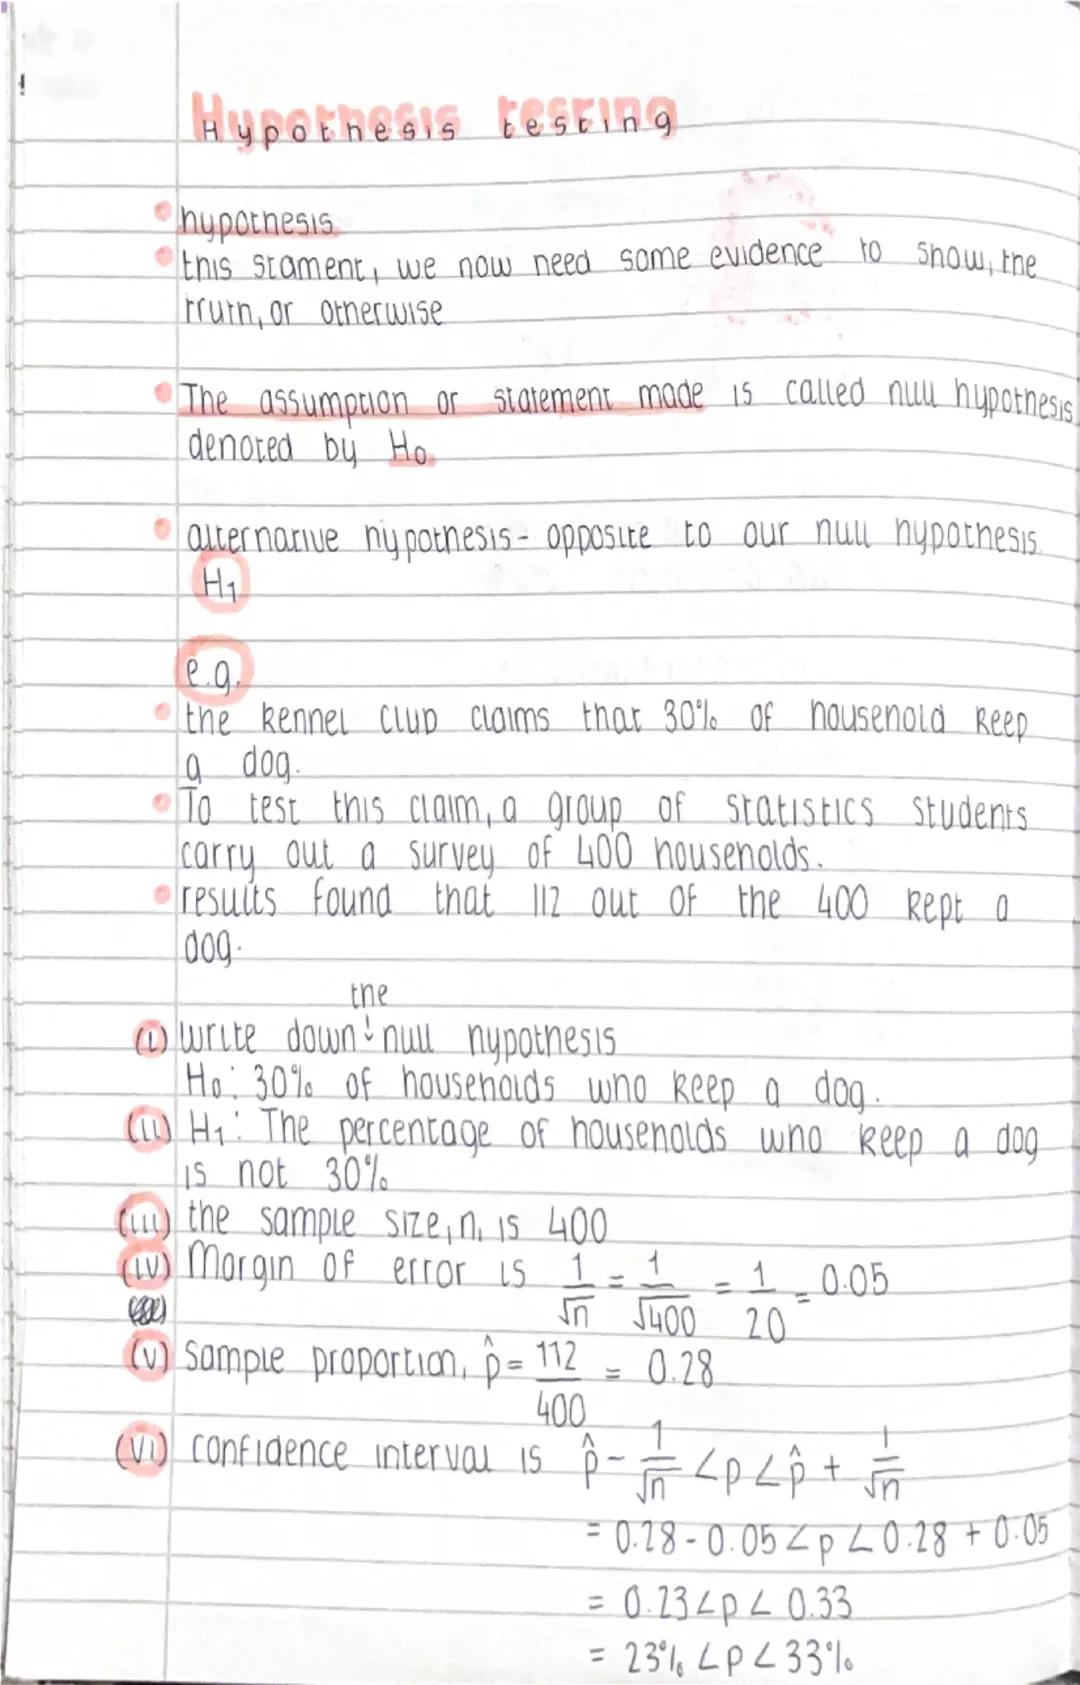 Hypothesis testing
hypothesis
this stament, we now need some evidence to show, the
truth, or otherwise
The assumption or statement made is called null hypothesis
denoted by H₀.
alternative hypothesis - opposite to our null hypothesis.
H₁
e.g.
the kennel club claims that 30% of household keep
a dog.
To test this claim, a group of statistics students
carry out a survey of 400 households.
results found that 112 out of the 400 kept a
dog.
the
(i) write down null hypothesis
H₀: 30% of households who keep a dog.
(ii) H₁: The percentage of households who keep a dog
is not 30%
(iii) the sample size, n, is 400
(iv) Margin of error is 1/√n = 1/√400 = 1/20 = 0.05
(v) Sample proportion, p̂ = 112/400 = 0.28
(vi) confidence interval is p̂ - 1/√n < p < p̂ + 1/√n
= 0.28 - 0.05 < p < 0.28 + 0.05
= 0.23 < p < 0.33
= 23% < p < 33%